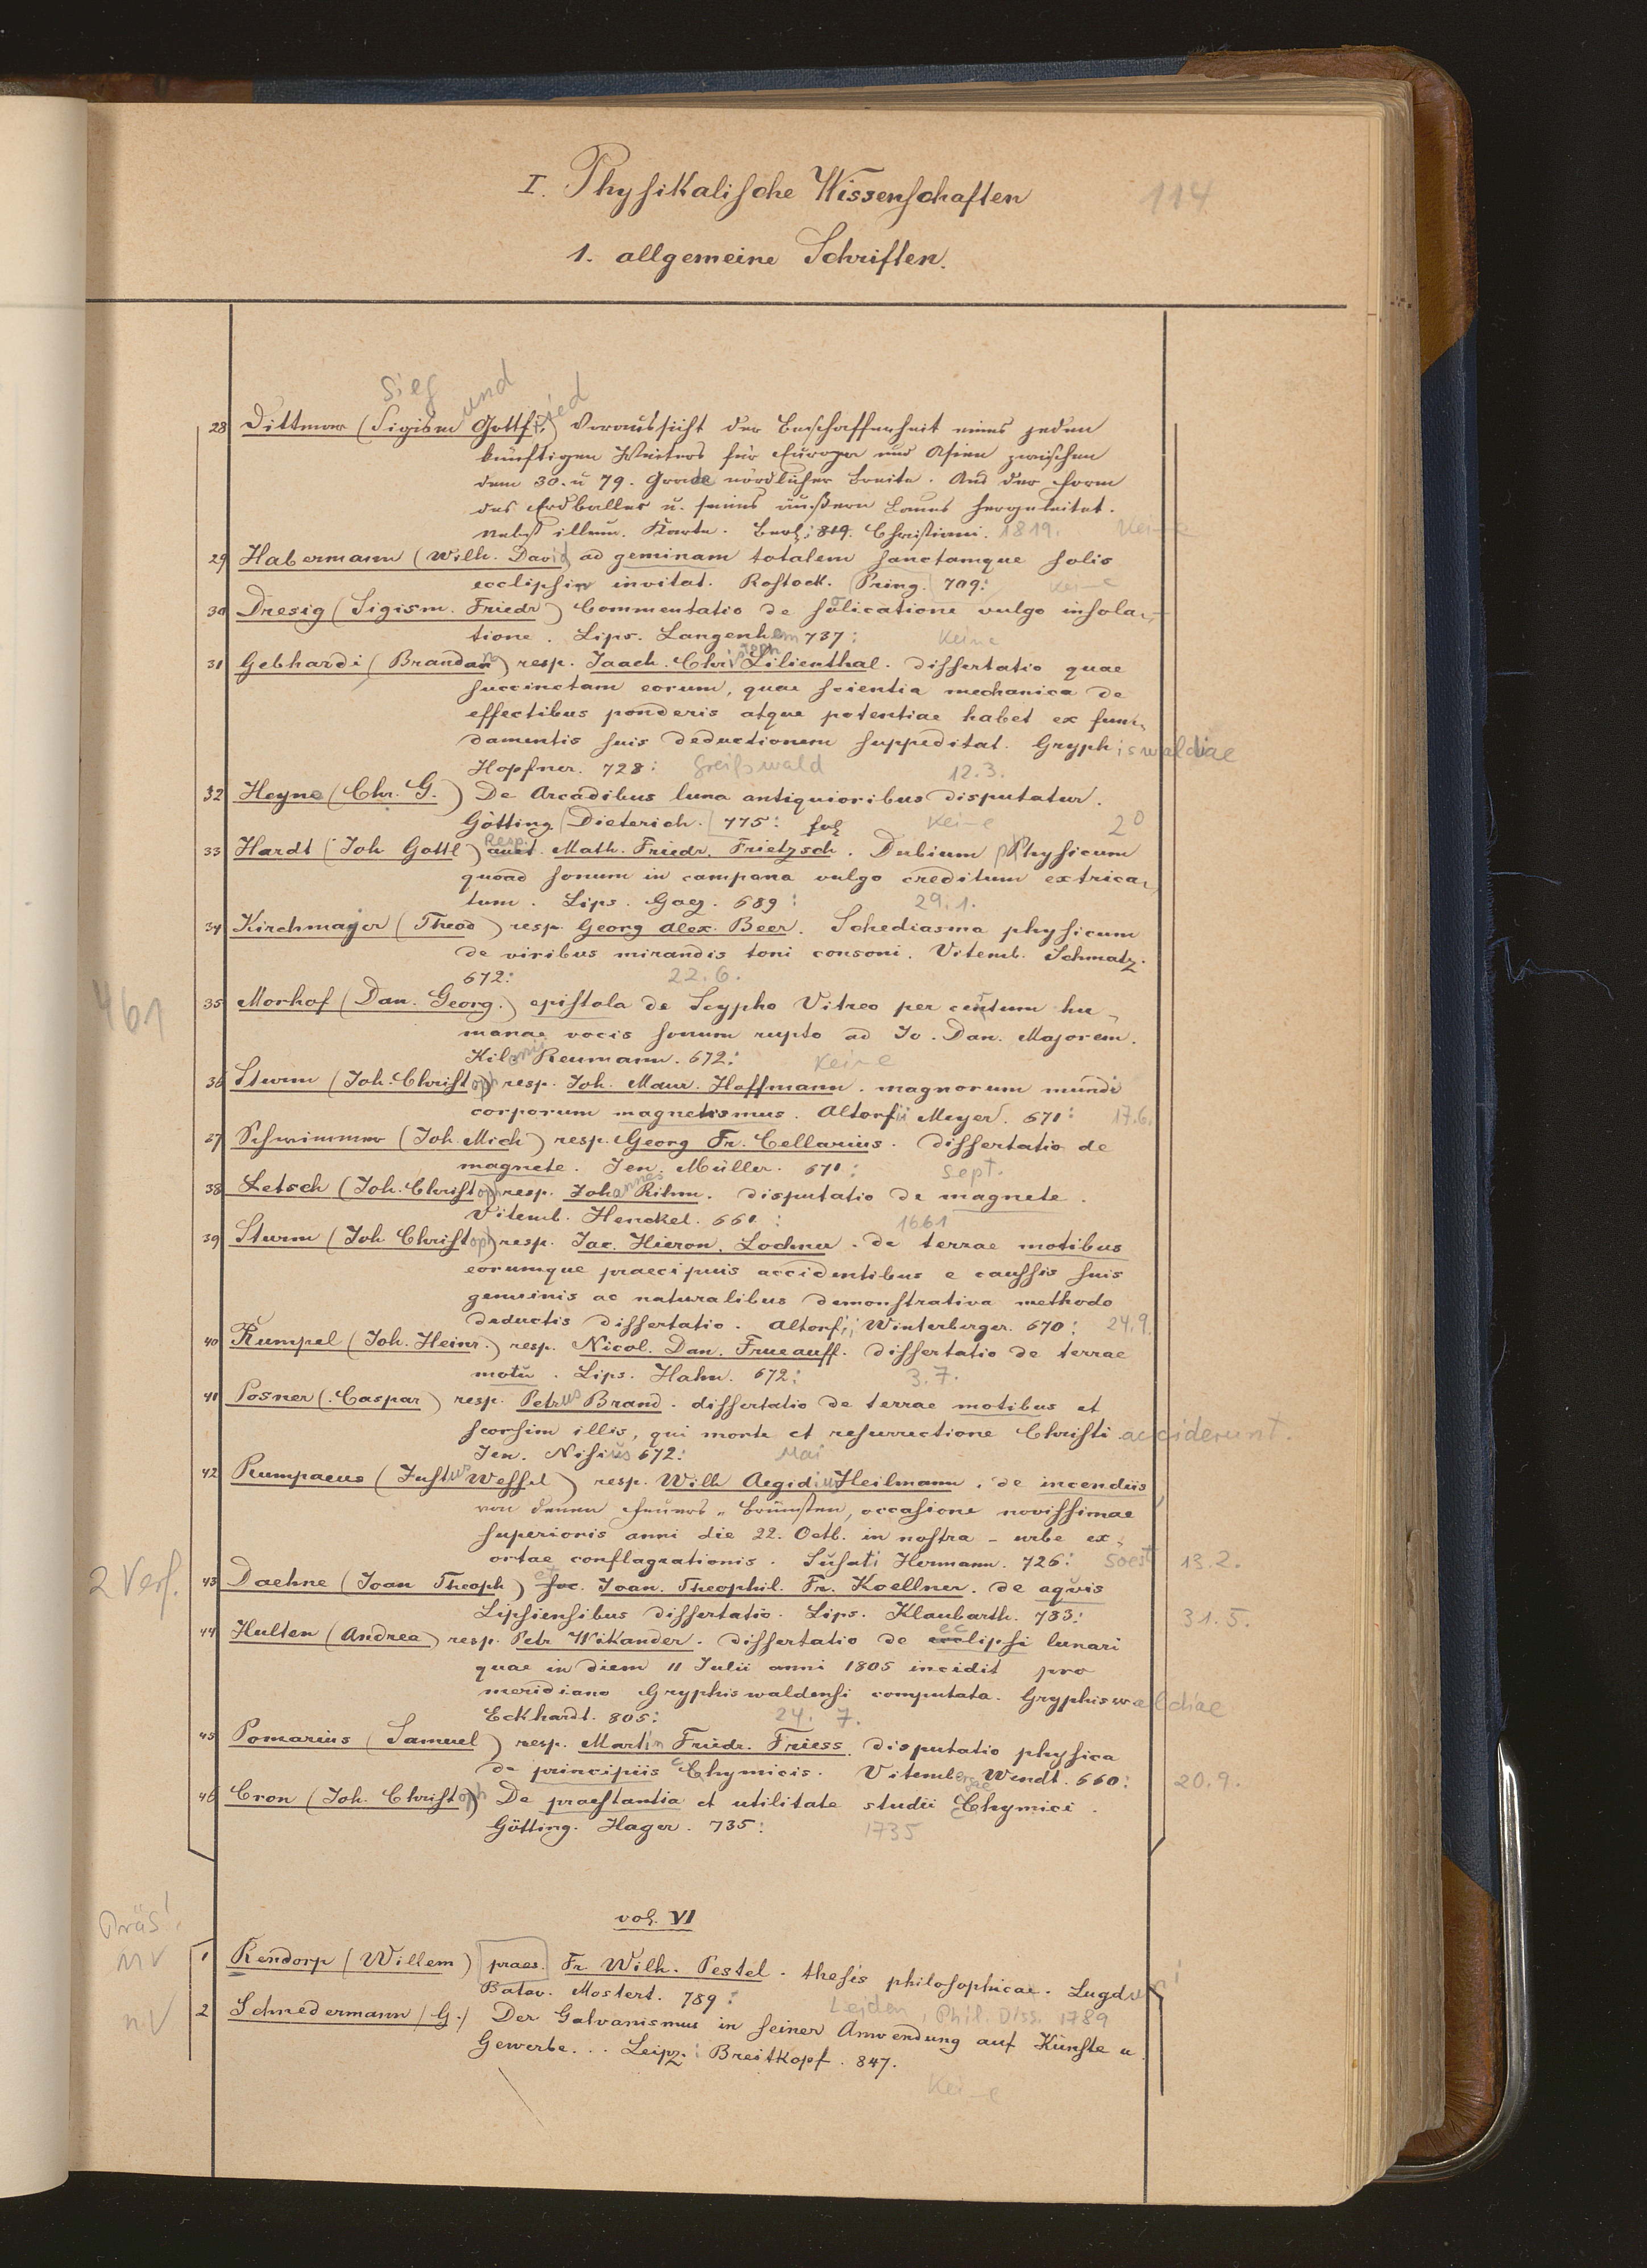 I. Physikalische Wissenschaften
114
1. allgemeine Schriften.
Sieg und ied
28 Dittmar (Sigism Gottfr.) Voraussicht der Beschaffenheit eines jeden
künftigen Winters für Europa und Asien zwischen
dem 30. u 79. Grade nördlicher Breite. Aus der Form
des Erdballes u. seines äußern Baues hergeleitet.
Nebst illum. Karte. Berl: 819. Christiani. 1819. Keine
29 Habermann (Wilh. David ad geminam totalem sanctamque solis
ecclipsin invitat. Rostock. Pring. 709: Keine
30 Dresig (Sigism. Friedr) Commentatio de solicatione vulgo insola-
tione. Lips. Langenhem 737: Keine
31 Gebhardi (Brandan) resp. Joach. Chri stoph Lilienthal. dissertatio quae
succinctam eorum, quae scientia mechanica de
effectibus ponderis atque potentiae habet ex fun-
damentis suis deductionem suppeditat. Gryphiswaldiae
Hopfner. 728: Greifswald 12.3.
32 Heyne (Chr. G.) De Arcadibus luna antiquioribus disputatur.
Götting. Dieterich. 775: fol Keine 2°
33 Hardt (Joh Gottl) auct. Resp. Math. Friedr. Frietzsch. Dubium Physicum
quoad sonum in campana vulgo creditum extrica-
tum. Lips. Goez. 689: 29.1.
34 Kirchmajer (Theod) resp. Georg Alex. Beer. Schediasma physicum
de viribus mirandis toni consoni. Vitemb. Schmatz.
672: 22.6.
461
35 Morhof (Dan. Georg.) epistola de Scypho Vitreo per centum hu-
manae vocis sonum rupto ad Jo. Dan. Majorem.
Kilonii Reumann. 672: Keine
36 Sturm (Joh. Christoph) resp. Joh. Maur. Hoffmann. magnorum mundi
corporum magnetismus. Altorfii Meyer. 671: 17.6.
37 Schwimmer (Joh. Mich) resp. Georg Fr. Cellarius. Dissertatio de
magnete. Jen. Müller. 671: Sept.
38 Letsch (Joh. Christoph) resp. Johannes Rihm. disputatio de magnete.
Vitemb. Henckel. 661: 1661
39 Sturm (Joh Christoph) resp. Jac. Hieron. Lochner. de terrae motibus
eorumque praecipuis accidentibus e caussis suis
genuinis ac naturalibus demonstrativa methodo
deductis dissertatio. Altorfii Winterberger. 670: 24.9.
40 Rumpel (Joh. Heinr.) resp. Nicol. Dan. Frueauff. dissertatio de terrae
motu. Lips. Hahn. 672: 3.7.
41 Posner (Caspar) resp. Petrus Brand. dissertatio de terrae motibus et
seorsim illis, qui morte et resurrectione Christi acciderunt.
Jen. Nisius 672: Mai
42 Rumpaeus (Justus Wessel) resp. Wilh Aegidius Heilmann. de incendiis
von denen Feuers-Brünsten, occasione novissimae
superioris anni die 22. Octb. in nostra-urbe ex-
ortae conflagrationis. Susati Hermann. 726: Soest 13.2.
2 Verf.
43 Daehne (Joan Theoph) et soc. Joan. Theophil. Fr. Koellner. de aquis
Lipsiensibus dissertatio. Lips. Klaubarth. 783: 31.5.
44 Hulten (Andrea) resp. Petr Wikander. dissertatio de ecclipsi lunari
quae in diem 11 Julii anni 1805 incidit pro
meridiano Gryphiswaldensi computata. Gryphiswaldiae
Eckhardt. 805: 24. 7.
45 Pomarius (Samuel) resp. Martin Friedr. Friess. disputatio physica
de principiis Chymicis. Vitembergae Wendt. 660: 20.9.
46 Cron (Joh. Christoph) De praestantia et utilitate studii Chymici.
Götting. Hager. 735: 1735
vol. VI
Präs!
nV
1 Rendorp (Willem) praes. Fr. Wilh. Pestel. thesis philosophicae. Lugduni
Batav. Mostert. 789: Leiden, Phil. Diss. 1789
nV
2 Schnedermann (G.) Der Galvanismus in seiner Anwendung auf Künste u.
Gewerbe... Leipz: Breitkopf. 847.
Keine